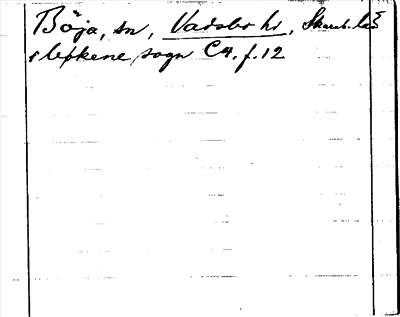 Böja, sn, Vadsbo hd, Skarab. län
i Lefkene sogn C4. f. 12